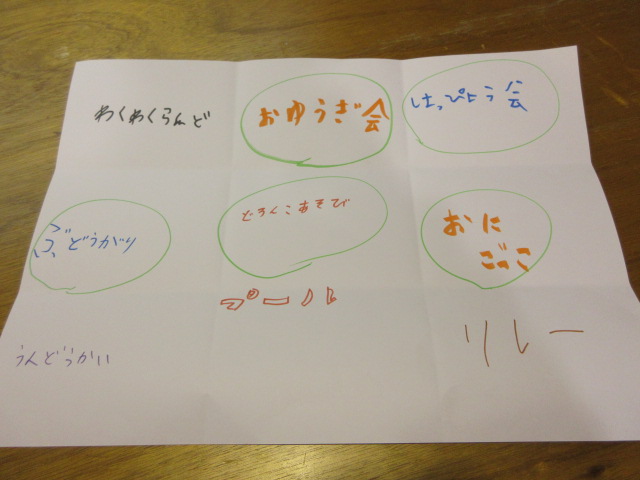 わくわくらんど
おゆうぎ会
はっぴょう会
ぶどうがり
どろんこあそび
おに
ごっこ
プール
リレー
うんどうかい